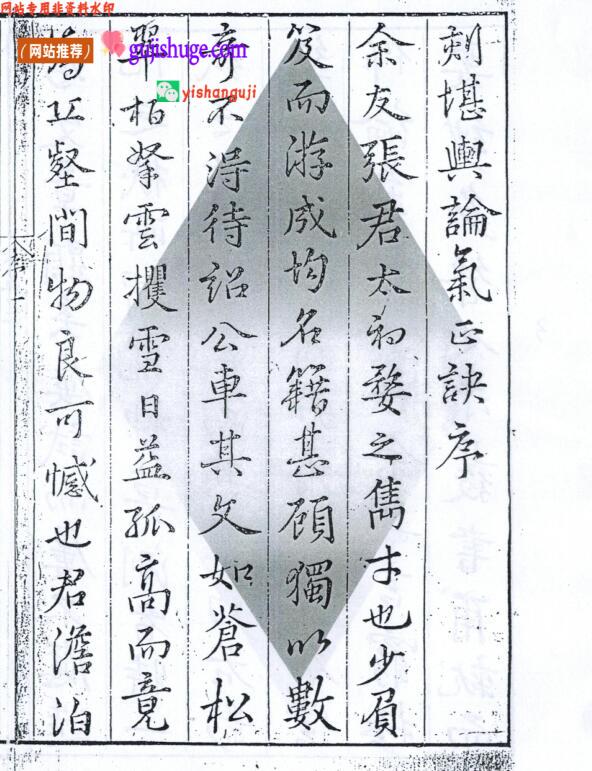 网站专用非资料水印
（网站推荐）
gujishuge.com
yishanguji
刻堪輿論氣正訣序
余友張君太初婺之雋才也少負
笈而游成均名籍甚顧獨以數
奇不得待詔公車其文如蒼松
翠柏拏雲攫雪日益孤高而竟
為丘壑間物良可憾也君澹泊